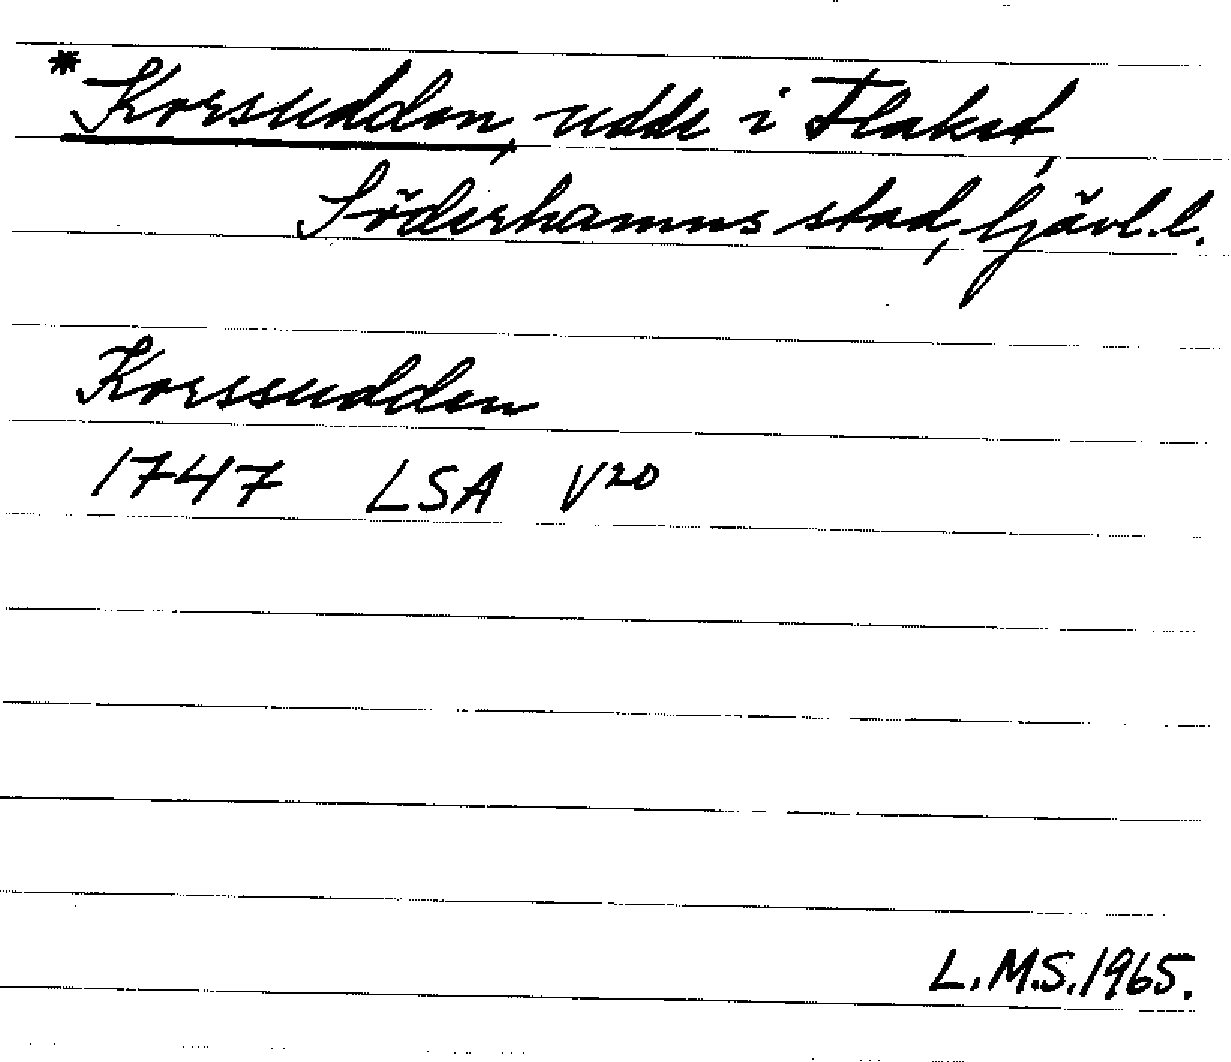 *Korsudden, udde i Flaket,
Söderhamns stad, Gävl.l.
Korssudden
1747 LSA V20
L.M.S.1965.